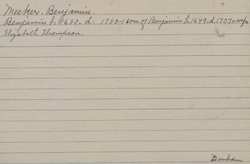 Meeker, Benjamin.
Benjamin b. 1680. d. 1750-1 son of Benjamin b. 1649. d. 1707 wife
Elizabeth Thompson.
Dunham